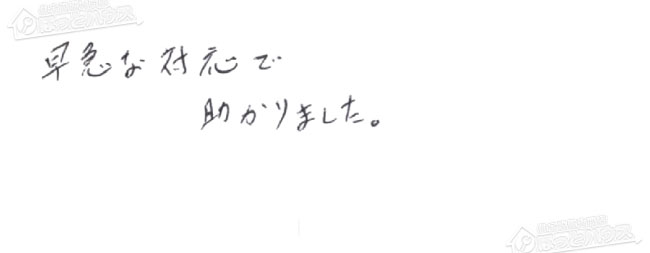 早急な対応で
助かりました。